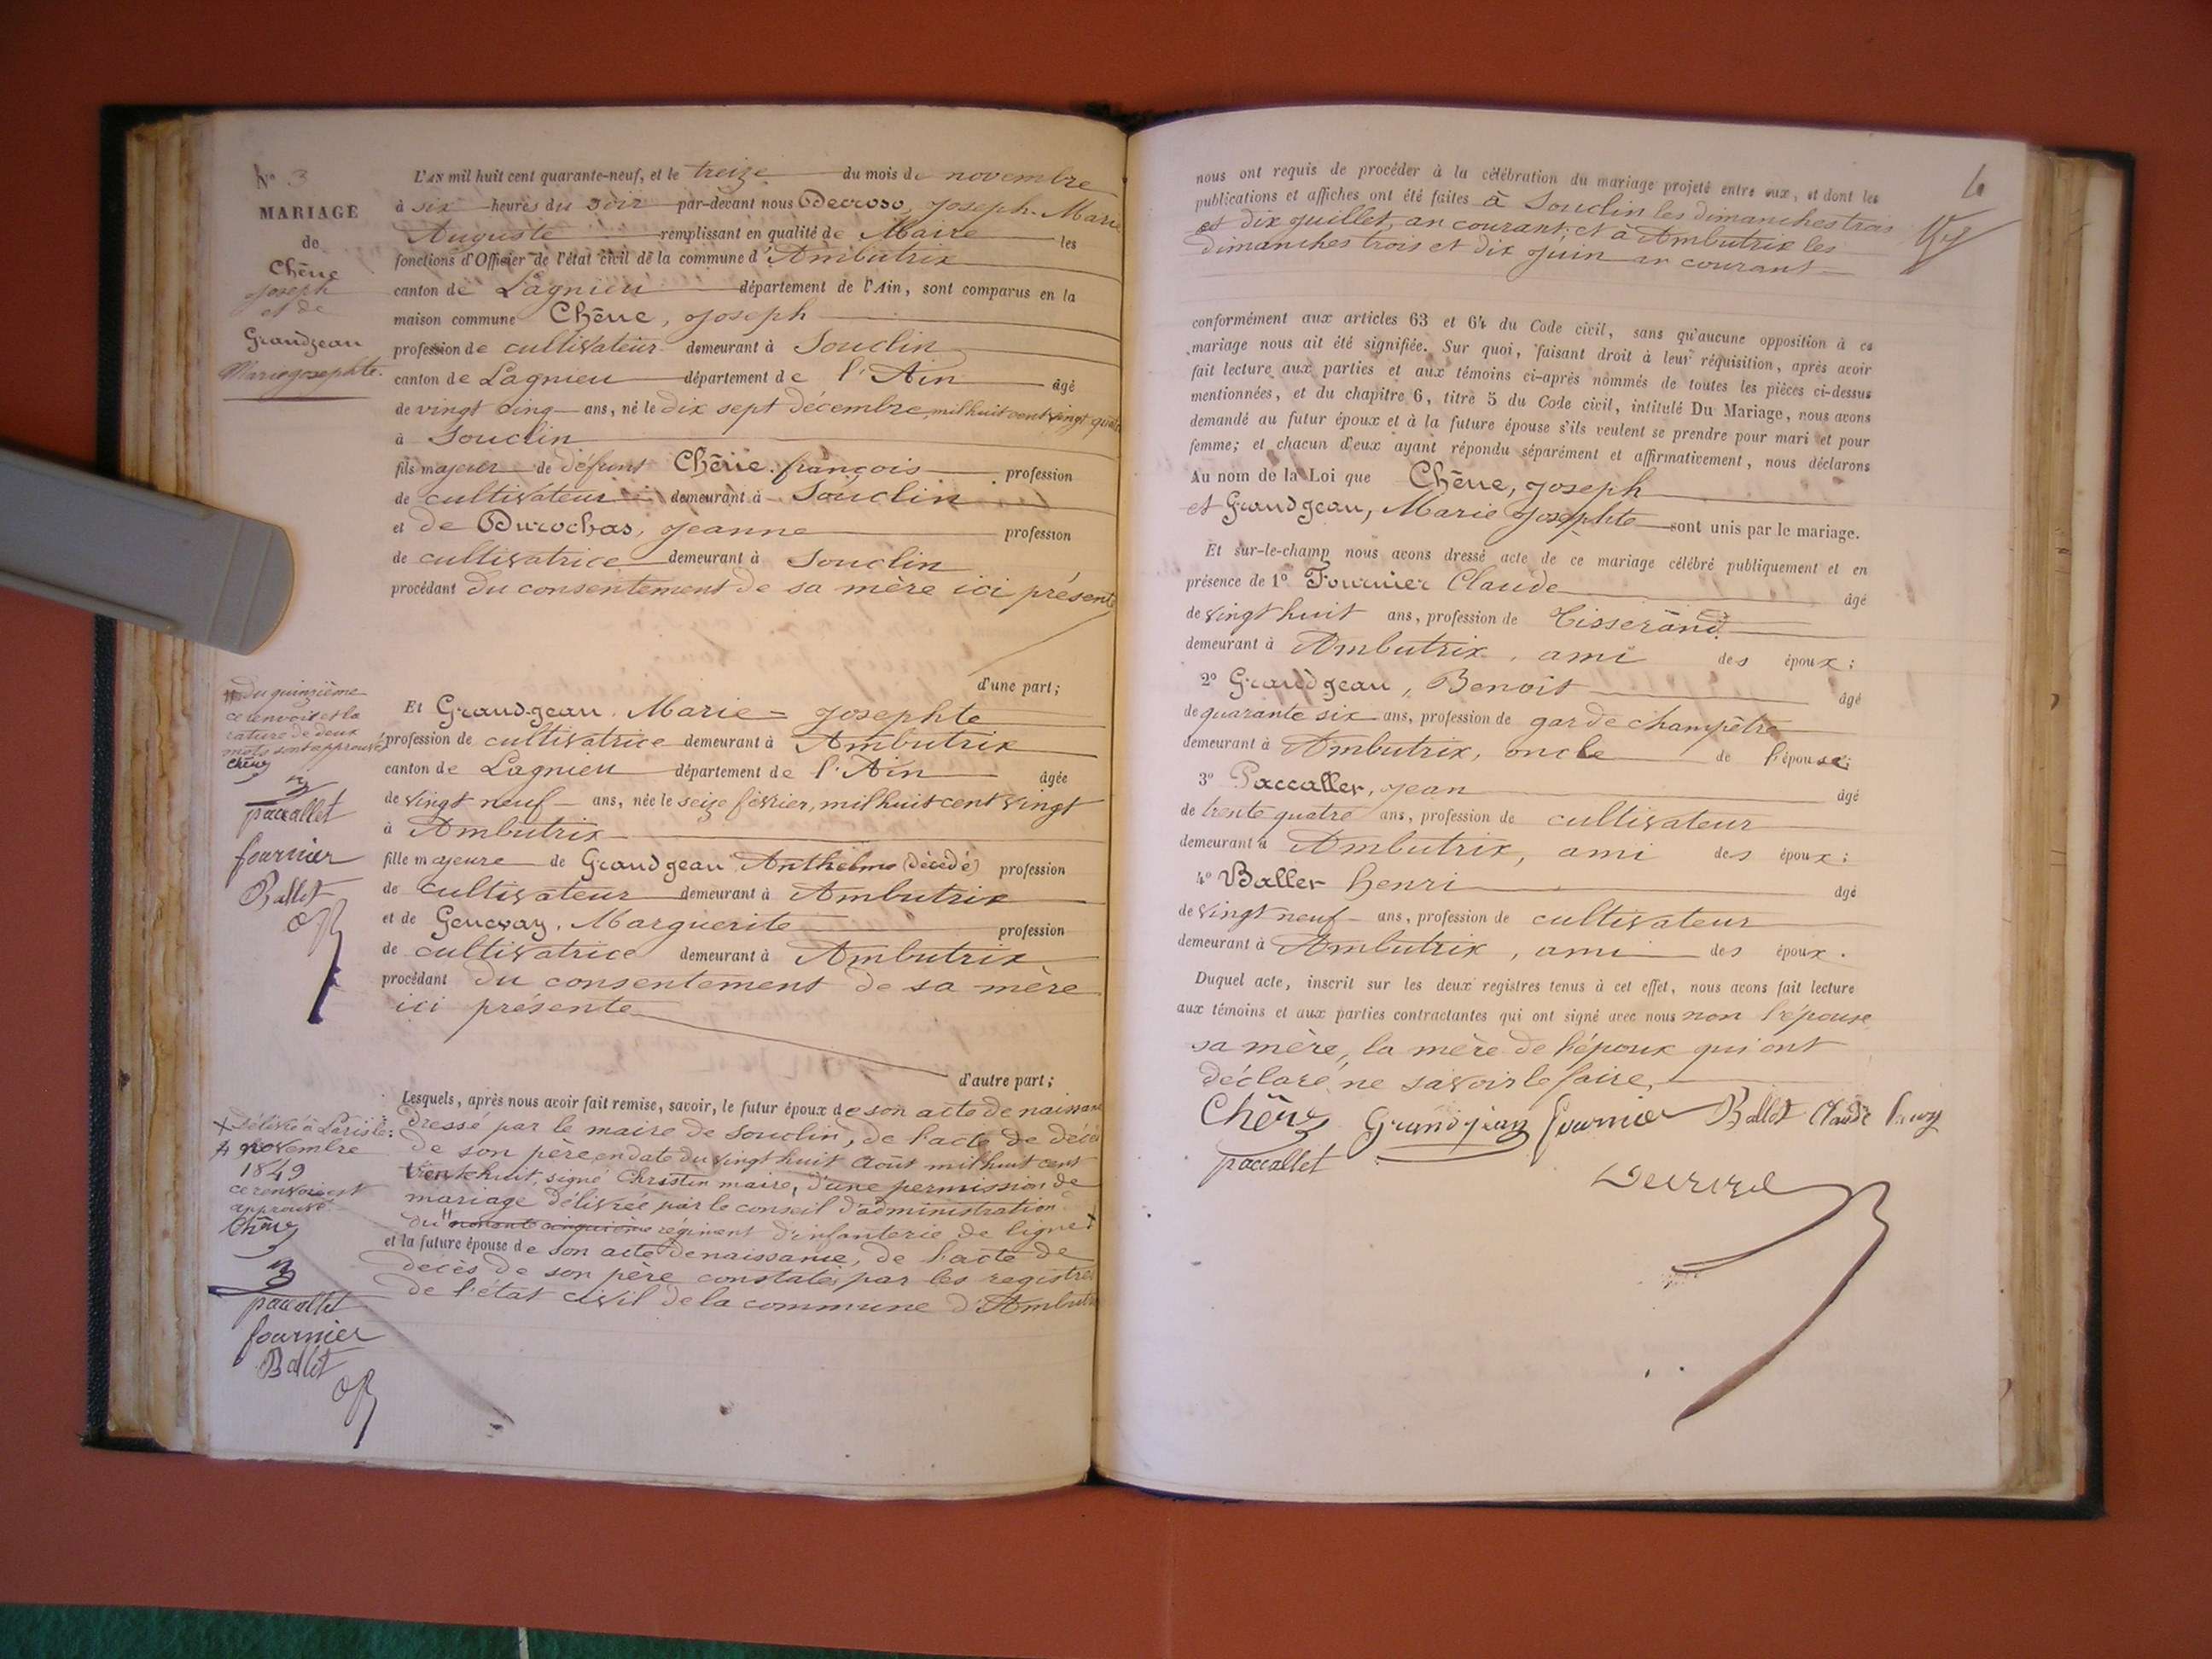 N° 3
MARIAGE
de
Chêne
Joseph
et de
Grandjean
Marie Josephte.
L'AN mil huit cent quarante-neuf, et le treize du mois de novembre
à six heures du soir par-devant nous Decroso, Joseph-Marie
Auguste remplissant en qualité de Maire les
fonctions d'Officier de l'état civil de la commune d'Ambutrix
canton de Lagnieu département de l'Ain, sont comparus en la
maison commune Chêne, Joseph
profession de cultivateur demeurant à Souclin
canton de Lagnieu département de l'Ain âgé
de vingt cinq ans, né le dix sept décembre, mil huit cent vingt quatre
à Souclin
fils majeur de défunt Chêne françois profession
de cultivateur demeurant à Souclin
et de Durochas, Jeanne profession
de cultivatrice demeurant à Souclin
procédant du consentement de sa mère ici présente
d'une part;
Et Grandjean, Marie-Josephte
profession de cultivatrice demeurant à Ambutrix
canton de Lagnieu département de l'Ain âgée
de vingt neuf ans, née le seize février, mil huit cent vingt
à Ambutrix
fille majeure de Grandjean Anthelme (décédé) profession
de cultivateur demeurant à Ambutrix
et de Genevay, Marguerite profession
de cultivatrice demeurant à Ambutrix
procédant du consentement de sa mère
ici présente
d'autre part;
Lesquels, après nous avoir fait remise, savoir, le futur époux de son acte de naissance
dressé par le maire de Souclin, de l'acte de décès
de son père, en date du vingt huit août mil huit cent
trente huit, signé Christin maire, d'une permission de
mariage délivrée par le conseil d'administration
du régiment d'infanterie de ligne X
et la future épouse de son acte de naissance, de l'acte de
décès de son père constatés par les registres
de l'état civil de la commune d'Ambutrix
du quinzième
ce renvoi et la
rature de deux
mots sont approuvés
Chêne
paccallet
fournier
Ballet
X délivré à
4 novembre
1849
ce renvoi est
approuvé
Chêne
paccallet
fournier
Ballet
6
nous ont requis de procéder à la célébration du mariage projeté entre eux, et dont les
publications et affiches ont été faites à Souclin les dimanches trois
et dix juillet, an courant et à Ambutrix les
dimanches trois et dix juin an courant
conformément aux articles 63 et 64 du Code civil, sans qu'aucune opposition à ce
mariage nous ait été signifiée. Sur quoi, faisant droit à leur réquisition, après avoir
fait lecture aux parties et aux témoins ci-après nommés de toutes les pièces ci-dessus
mentionnées, et du chapitre 6, titre 5 du Code civil, intitulé Du Mariage, nous avons
demandé au futur époux et à la future épouse s'ils veulent se prendre pour mari et pour
femme; et chacun d'eux ayant répondu séparément et affirmativement, nous déclarons
Au nom de la Loi que Chêne, Joseph
et Grandjean, Marie Josephte sont unis par le mariage.
Et sur-le-champ nous avons dressé acte de ce mariage célébré publiquement et en
présence de 1° Fournier Claude âgé
de vingt huit ans, profession de Tisserand
demeurant à Ambutrix, ami des époux;
2° Grandjean, Benoit âgé
de quarante six ans, profession de garde champêtre
demeurant à Ambutrix, oncle de l'épouse;
3° Paccallet, Jean âgé
de trente quatre ans, profession de cultivateur
demeurant à Ambutrix, ami des époux;
4° Ballet henri âgé
de vingt neuf ans, profession de cultivateur
demeurant à Ambutrix, ami des époux.
Duquel acte, inscrit sur les deux registres tenus à cet effet, nous avons fait lecture
aux témoins et aux parties contractantes qui ont signé avec nous non l'épouse
sa mère, la mère de l'époux qui ont
déclaré ne savoir le faire,
Chêne Grandjean fournier Ballet Claude
paccallet